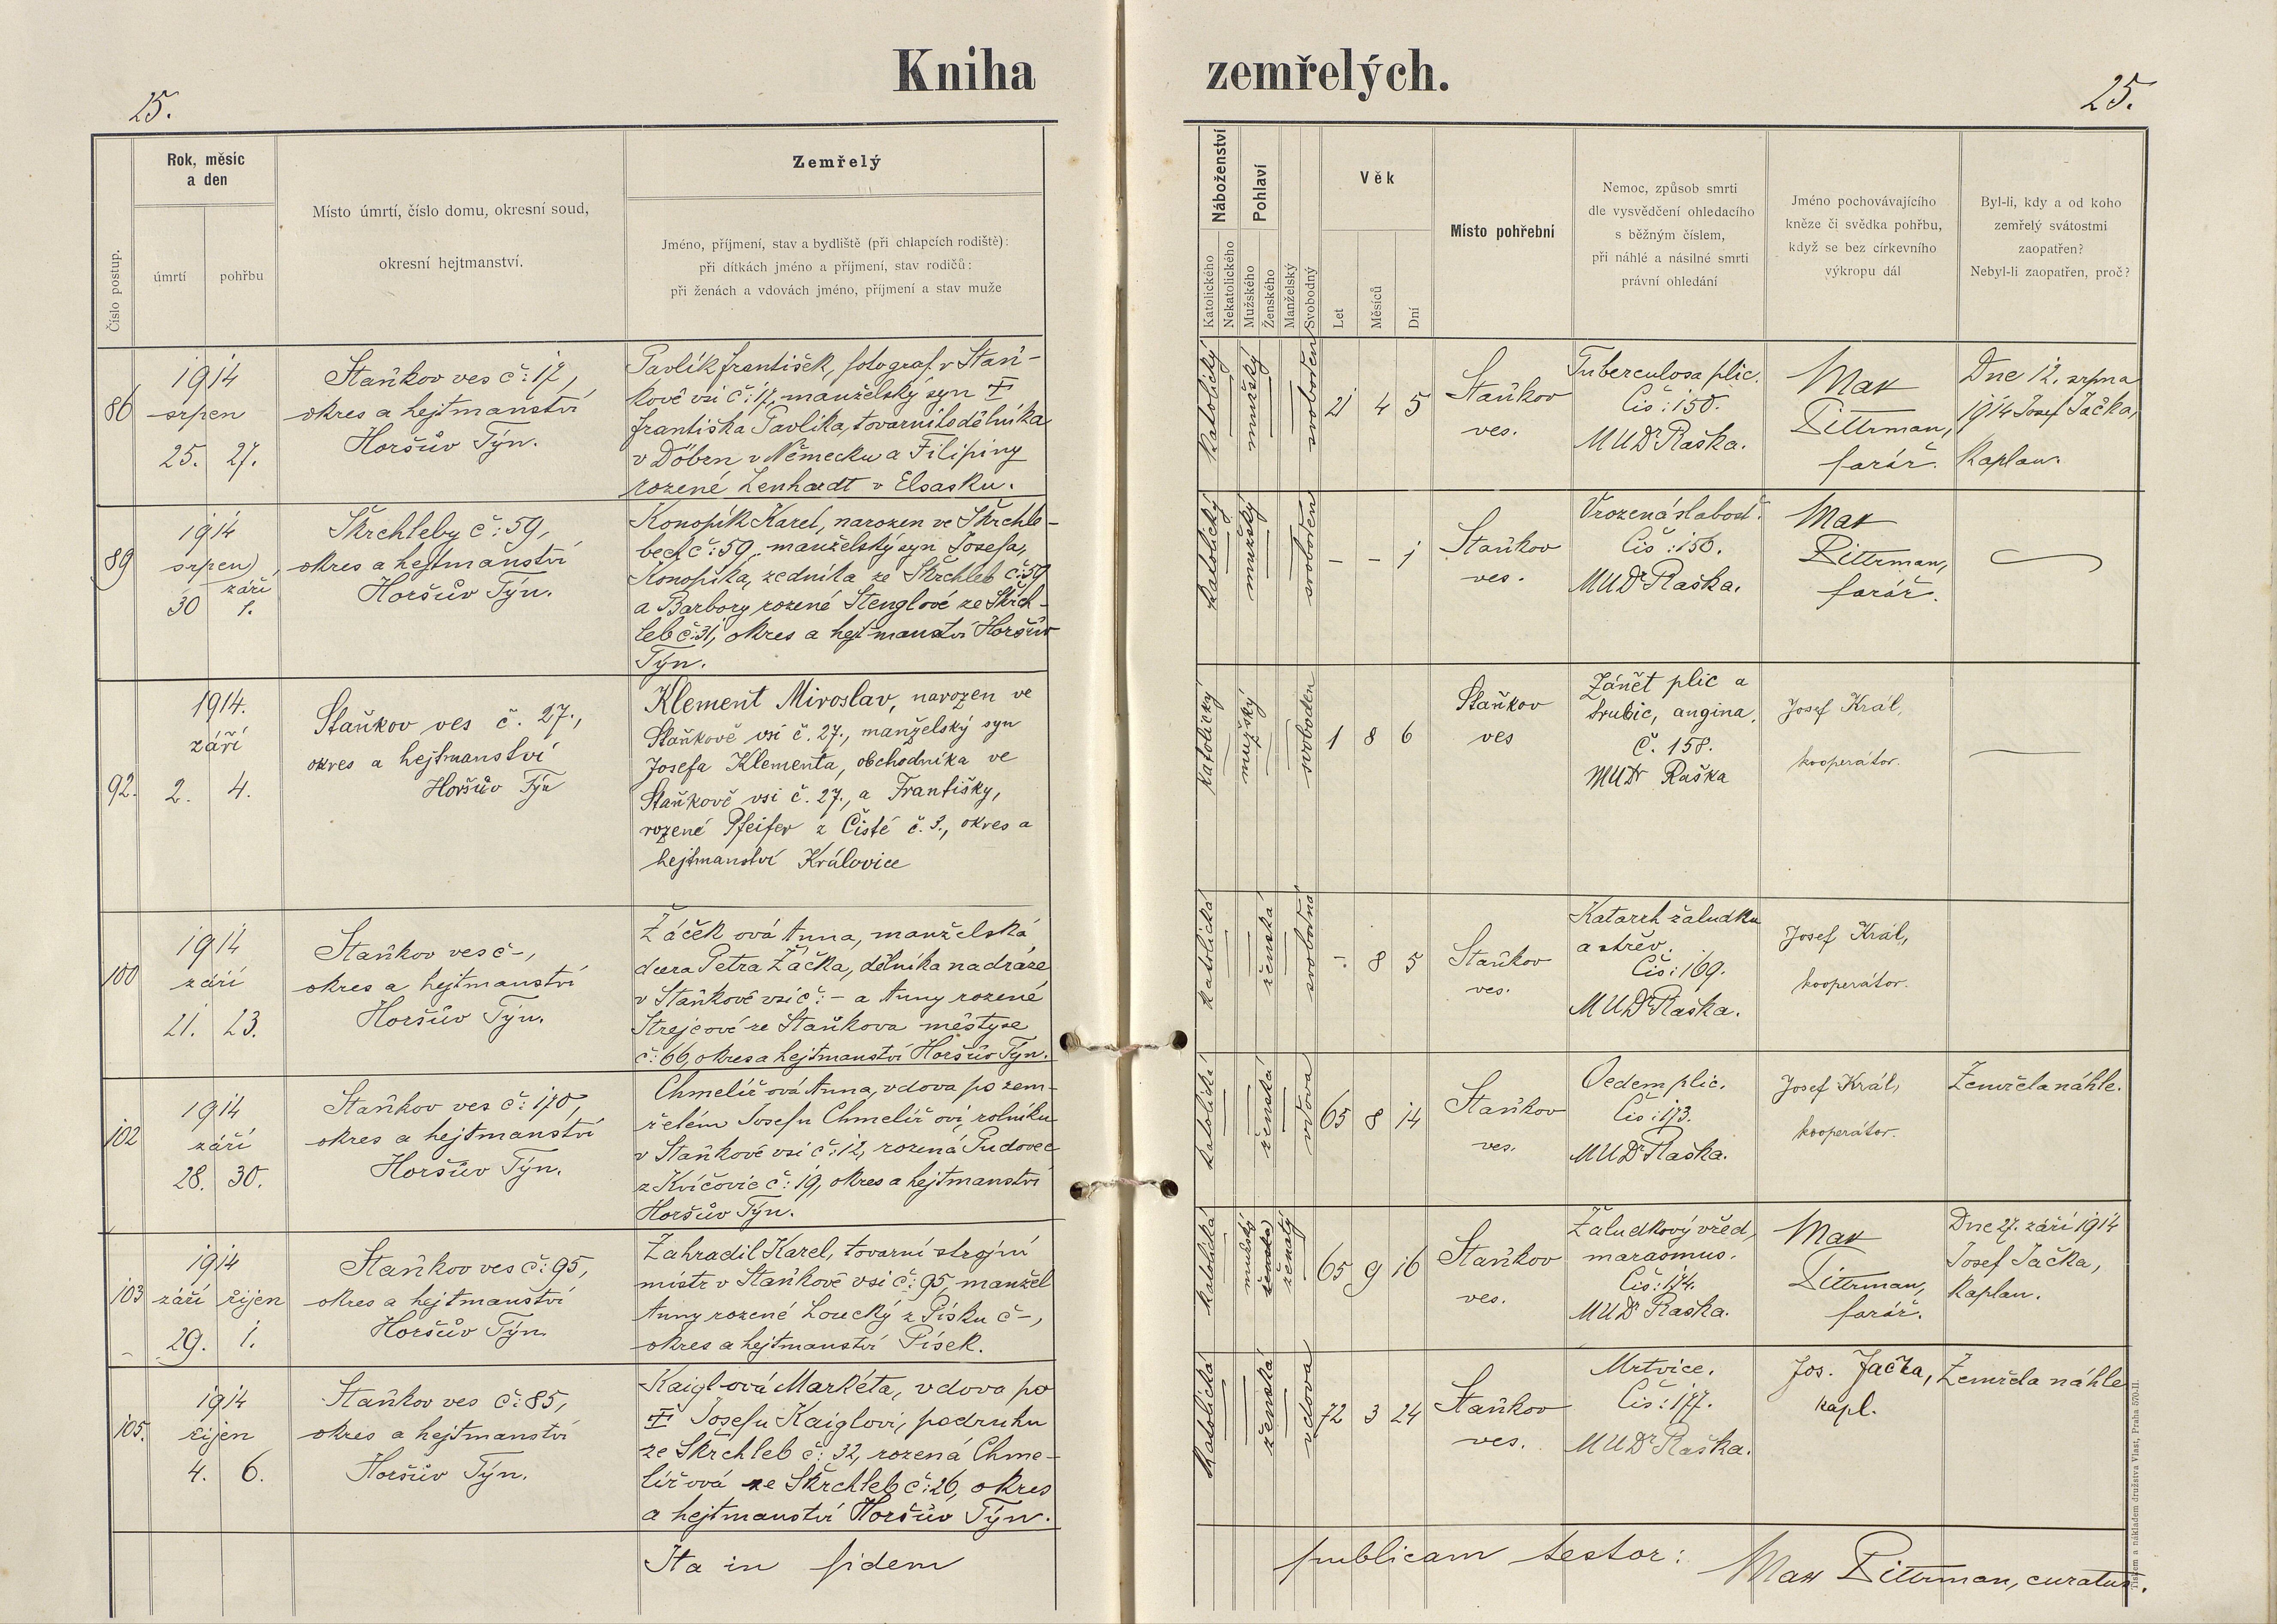 Kniha zemřelých.
25.
25.
Číslo postup.
Rok, měsíc
a den
úmrtí
pohřbu
Místo úmrtí, číslo domu, okresní soud,
okresní hejtmanství.
Zemřelý
Jméno, příjmení, stav a bydliště (při chlapcích rodiště):
při dítkách jméno a příjmení, stav rodičů:
při ženách a vdovách jméno, příjmení a stav muže
Náboženství
Katolického
Nekatolického
Pohlaví
Mužského
Ženského
Manželský
Svobodný
Věk
Let
Měsíců
Dní
Místo pohřební
Nemoc, způsob smrti
dle vysvědčení ohledacího
s běžným číslem,
při náhlé a násilné smrti
právní ohledání
Jméno pochovávajícího
kněze či svědka pohřbu,
když se bez církevního
výkropu dál
Byl-li, kdy a od koho
zemřelý svátostmi
zaopatřen?
Nebyl-li zaopatřen, proč?
86
1914
srpen
25. 27.
Staňkov ves č: 17,
okres a hejtmanství
Horšův Týn.
Pavlík František, fotograf v Staň-
kově vsi č: 17, manželský syn †
Františka Pavlíka, továrního dělníka
v Döbrn v Německu a Filipiny
rozené Lenhardt v Elsasku.
katolický
mužský
svoboden
21 4 5
Staňkov
ves.
Tuberculosa plic.
Čís: 150.
MUDr Raška.
Max
Pittrman,
farář.
Dne 12. srpna
1914 Josef Jačka,
kaplan.
89
1914
srpen
září
30 1.
Škrchleby č: 59,
okres a hejtmanství
Horšův Týn.
Konopík Karel, narozen ve Škrchle-
bech č: 59, manželský syn Josefa,
Konopíka, zedníka ze Škrchleb č: 59
a Barbory rozené Stenglové ze Škrch-
leb č: 31, okres a hejtmanství Horšův
Týn.
katolický
mužský
svoboden
- - 1
Staňkov
ves.
Vrozená slabosť.
Čís: 156.
MUDr Raška.
Max
Pittrman,
farář.
92.
1914.
září
2. 4.
Staňkov ves č. 27.,
okres a hejtmanství
Horšův Týn
Klement Miroslav, narozen ve
Staňkově vsi č. 27., manželský syn
Josefa Klementa, obchodníka ve
Staňkově vsi č. 27., a Františky,
rozené Pfeifer z Čisté č. 3., okres a
hejtmanství Královice
katolický
mužský
svoboden
1 8 6
Staňkov
ves
Zánět plic a
hrubic, angina.
č. 158.
MUDr Raška
Josef Král,
kooperátor.
100
1914
září
21. 23.
Staňkov ves č -,
okres a hejtmanství
Horšův Týn.
Žáčková Anna, manželská
dcera Petra Žáčka, dělníka na dráze
v Staňkově vsi č: - a Anny rozené
Strejcové ze Staňkova městyse
č: 66, okres a hejtmanství Horšův Týn.
katolická
ženská
svobodná
- 8 5
Staňkov
ves.
Katarrh žaludku
a střev.
Čís: 169.
MUDr Raška.
Josef Král,
kooperátor.
102
1914
září
28. 30.
Staňkov ves č: 170,
okres a hejtmanství
Horšův Týn.
Chmelířová Anna, vdova po zem-
řelém Josefu Chmelířovi, rolníku
v Staňkově vsi č: 12, rozená Pudovec
z Kvíčovic č: 19, okres a hejtmanství
Horšův Týn.
katolická
ženská
vdova
65 8 14
Staňkov
ves.
Oedem plic.
Čís: 173.
MUDr Raška.
Josef Král,
kooperátor.
Zemřela náhle.
103
1914
září říjen
29. 1.
Staňkov ves č: 95,
okres a hejtmanství
Horšův Týn.
Zahradil Karel, tovární strojní
mistr v Staňkově vsi č: 95, manžel
Anny rozené Loucký z Písku č -,
okres a hejtmanství Písek.
katolická
mužský
ženská
ženatý
65 9 16
Staňkov
ves.
Žaludkový vřed,
marasmus.
Čís: 174.
MUDr Raška.
Max
Pittrman,
farář.
Dne 27. září 1914
Josef Jačka,
kaplan.
105.
1914
říjen
4. 6.
Staňkov ves č: 85,
okres a hejtmanství
Horšův Týn.
Kaiglová Markéta, vdova po
† Josefu Kaiglovi, podruhu
ze Škrchleb č: 32, rozená Chme-
lířová ze Škrchleb č: 26, okres
a hejtmanství Horšův Týn.
katolická
ženská
vdova
72 3 24
Staňkov
ves.
Mrtvice.
Čís: 177.
MUDr Raška.
Jos. Jačka,
kapl.
Zemřela náhle
Ita in fidem publicam testor:
Max Pittrman, curatus.
Tiskem a nákladem družstva Vlast, Praha 570-II.